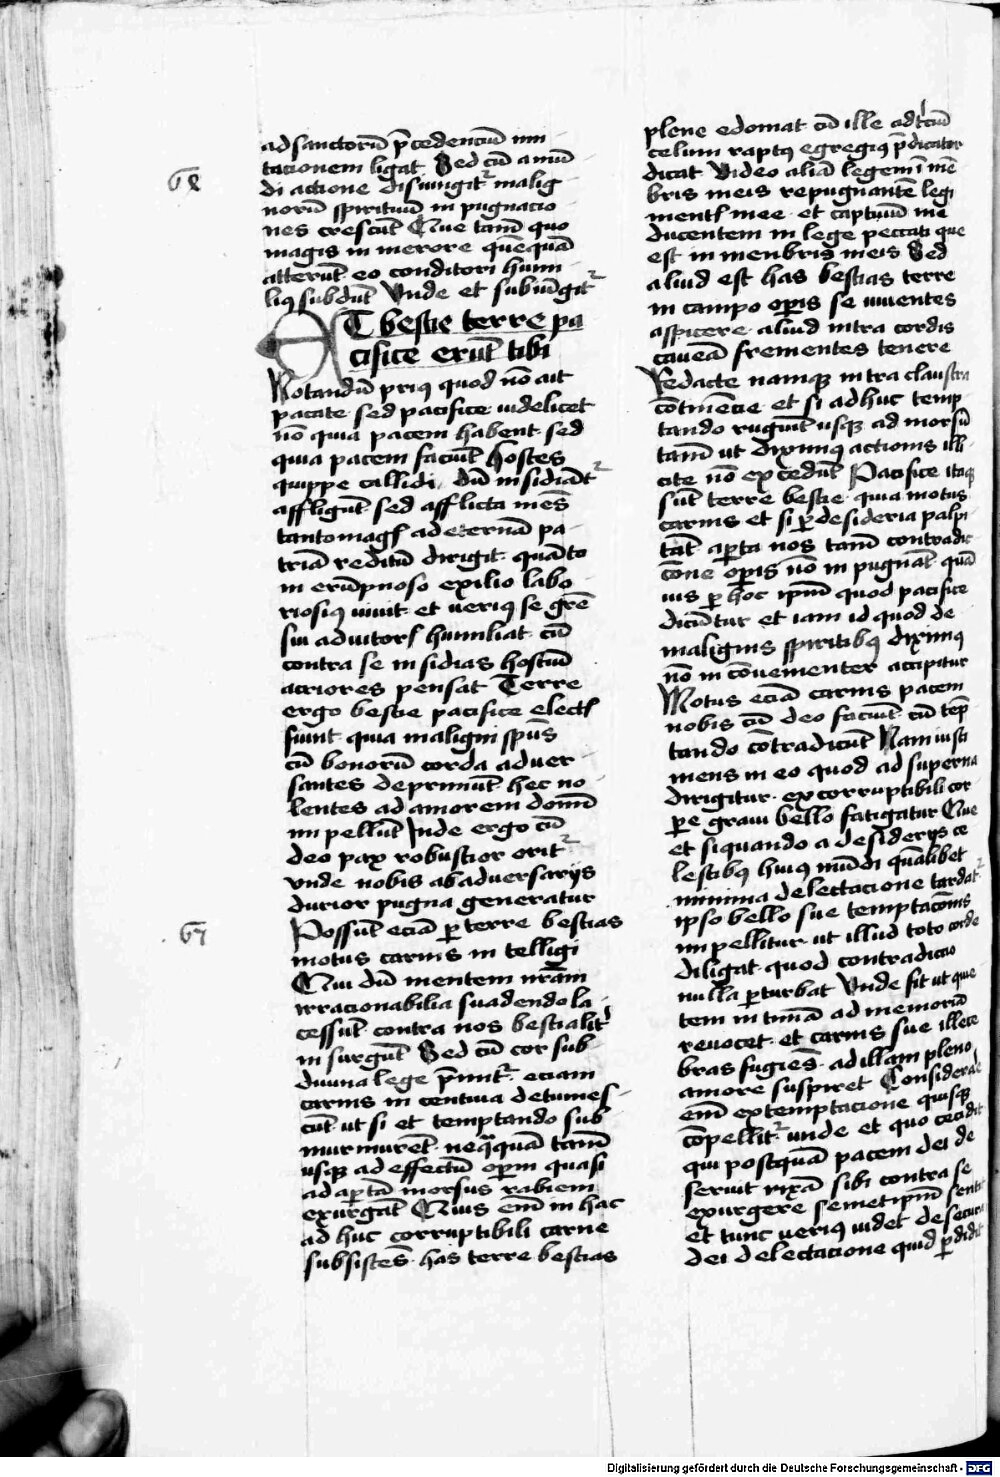 ad sanctorū p̄cedenciū imi
tacionem ligat Sed cū a mū
68
di actione disiungit᷑ malig
norū spirituū in pugnacio
nes crescūt Que tam̄ quo
magis in merore quēquā
atterūt eo conditori humi
liꝯ subdūt Vnde et subiūgit᷑
ET bestie terre pa
cifice erūt tibi
Notandū priꝯ quod nō ait
pacate sed pacifice videlicet
nō quia pacem habent sed
quia pacem faciūt hostes
quippe callidi dū insidiāt᷑
affligūt sed afflicta mēs
tanto magꝭ ad eternā pa
triā reditū dirigit quāto
in erūpnoso exilio labo
riosiꝯ viuit et veriꝯ se grē
sui aduitorꝭ humiliat cū
contra se insidias hostiū
acriores pensat Terre
ergo bestie pacifice electꝭ
fiunt quia maligni spūs
cū bonorū corda aduer
santes deprimūt hec no
lentes ad amorem domī
impellūt Inde ergo cū
deo pax robustior orit᷑
vnde nobis ab aduersarijs
durior pugna generatur
67
Possūt eciā ꝑ terre bestias
motus carnis in telligi
Qui dū mentem nr̄am
irracionabilia suadendo la
cessūt contra nos bestialit᷑
in surgūt Sed cū cor sub
diuina lege p̄mit᷑ eciam
carnis in centiua detumes
cūt ut si et temptando sub
murmurēt neqᷓquā tam̄
usqꝫ ad effectū oꝑm quasi
ad aꝑtā morsus rabiem
exurgāt Quis em̄ in hac
ad huc corruptibili carne
subsistēs has terre bestias
plene edomat cū ille ad t᷑ciū
celum raptꝯ egregiꝯ p̄dicator
dicat Video aliā legem ī mē
bris meis repugnantē legi
mentꝭ mee et captiuū me
ducentem in lege peccati que
est in menbris meis Sed
aliud est has bestias terre
in campo oꝑis se viuentes
aspicere aliud intra cordis
caueā frementes tenere
Redacte namqꝫ intra claustra
cōtinēcie et si ad huc temp
tando rugiūt usqꝫ ad morsū
tam̄ ut diximꝯ actionis illi
cite nō excedūt Pacifice itaqꝫ
sūt terre bestie quia motus
carnis et si ꝑ desideria palpi
tāt aꝑta nos tam̄ contradic
cōne oꝑis nō in pugnāt quā
uis ꝑ hoc ipm̄ quod pacifice
dicūtur et iam id quod de
malignis spiritibꝯ diximꝯ
nō in cōuenienter accipitur
Motus eciā carnis pacem
nobis cū deo faciūt cū tēp
tando cōtradicūt Nam iusti
mens in eo quod ad superna
dirigitur ex corruptibili cor
ꝑe graui bello fatigatur Que
et siquando a desiderijs ce
lestibꝯ huiꝯ mūdi quālibet
minima delectacione tardat᷑
ipso bello sue temptacōnis
impellitur ut illud toto corde
diligat quod contradictio
nulla ꝑturbat Vnde fit ut que
tem in timā ad memoriū
reuocet et carnis sue illece
bras fugiēs ad illam pleno
amore suspiret Considerare
em̄ ex temptacione quisqꝫ
cōpellit᷑ unde et quo cecidit
qui postquā pacem dei de
seruit rixā sibi contra se
exurgere semetipm̄ sentit
et tunc veriꝯ videt de secura
dei delectacione quid ꝑdidit
Digitalisierung gefördert durch die Deutsche Forschungsgemeinschaft - DFG